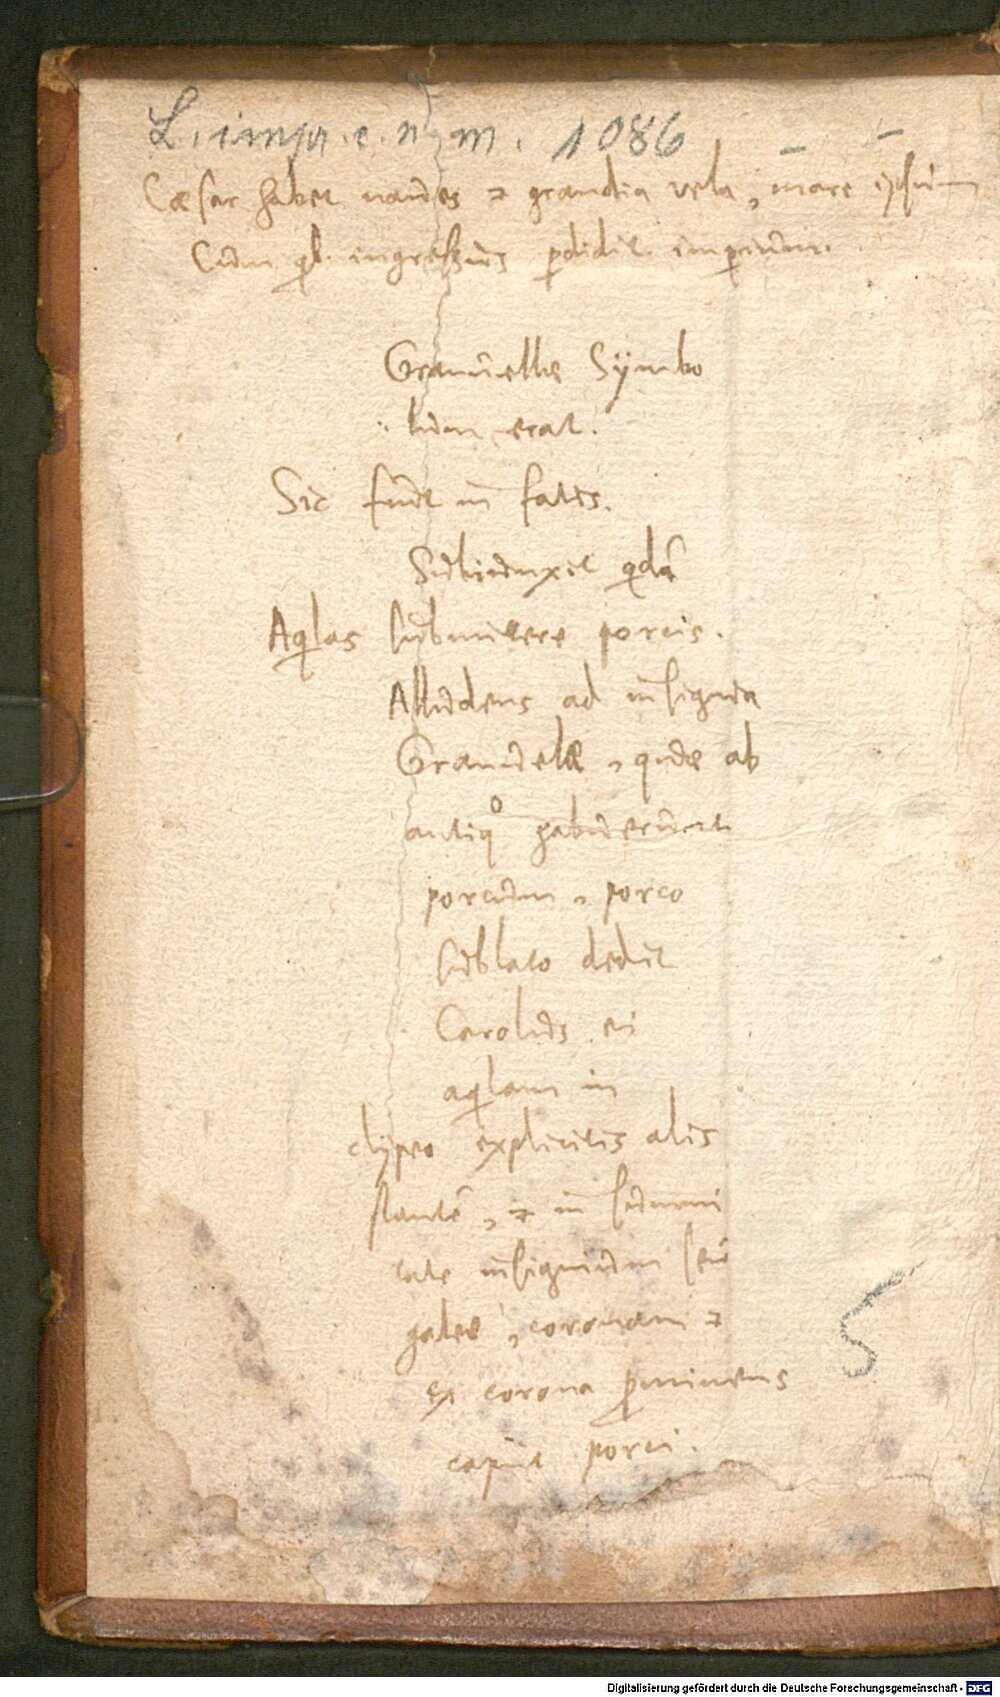 L. impr. c. n. m. 1086
Cæsar habet naues et grandia vela, mare ipsum
Cum qb. ingreßus pdidit imperium.
Granuellæ Symbo
lum erat.
Sic sūt in fatis.
Subiunxit qdā
Aqlas submittere porcis.
Alludens ad insignia
Granuelæ, quæ ab
antiqº habuerunt
porcum, porco
sublato dedit
Carolus ei
aqlam in
clÿpeo explicitis alis
stantē, et in summi
tate insignium seu
galeæ, coronam et
ex corona pminens
caput porci.
5
Digitalisierung gefördert durch die Deutsche Forschungsgemeinschaft - DFG